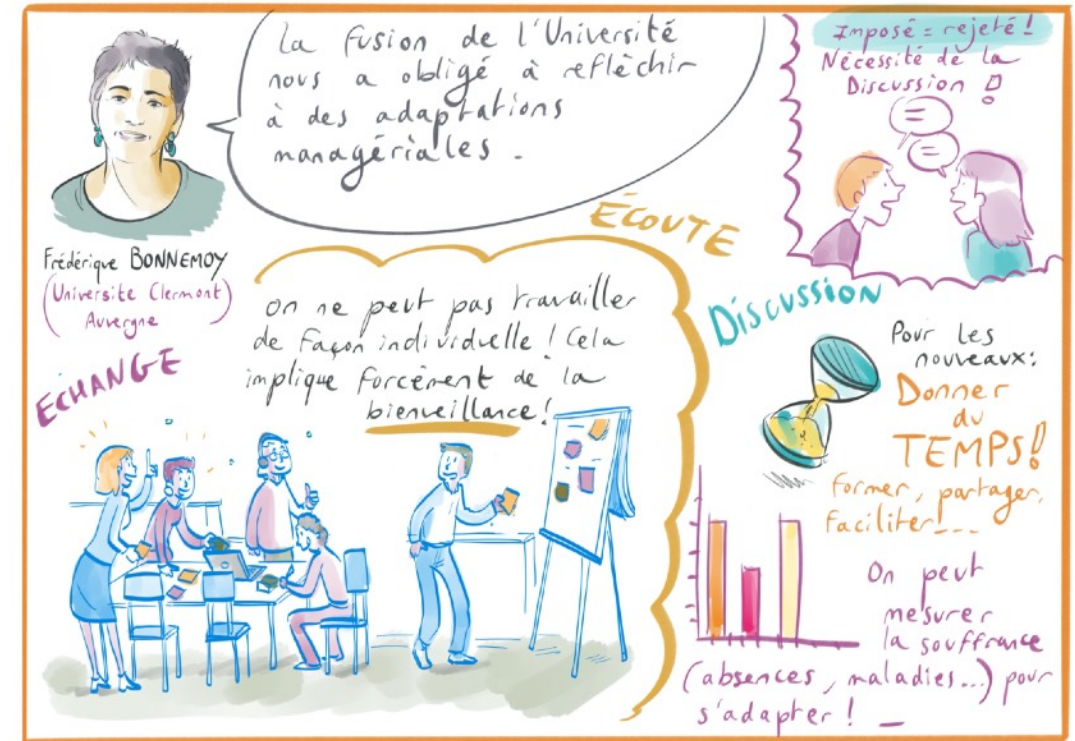 La fusion de l'Université
nous a obligé à reflèchir
à des adaptations
managériales.
Imposé = rejeté !
Nécessité de la
Discussion !
Frédérique BONNEMOY
(Universite Clermont
Auvergne)
ÉCOUTE
DISCUSSION
ECHANGE
On ne peut pas travailler
de façon individuelle ! Cela
implique forcément de la
bienveillance !
Pour les
nouveaux :
Donner
du
TEMPS !
Former, partager,
faciliter !...
On peut
mesurer
la souffrance
(absences, maladies...) pour
s'adapter ! _